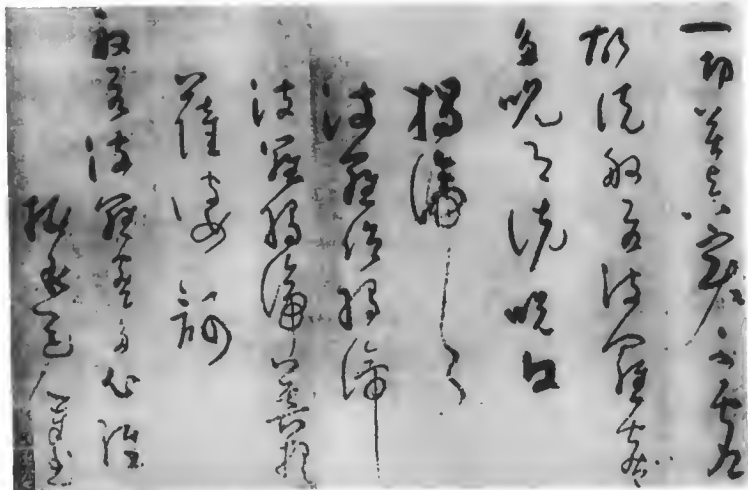 一切苦真實不虛
故說般若波羅蜜
多呪即說呪曰
揭諦〻〻
波羅揭諦
波羅揭諦菩提
薩婆訶
般若波羅蜜多心經